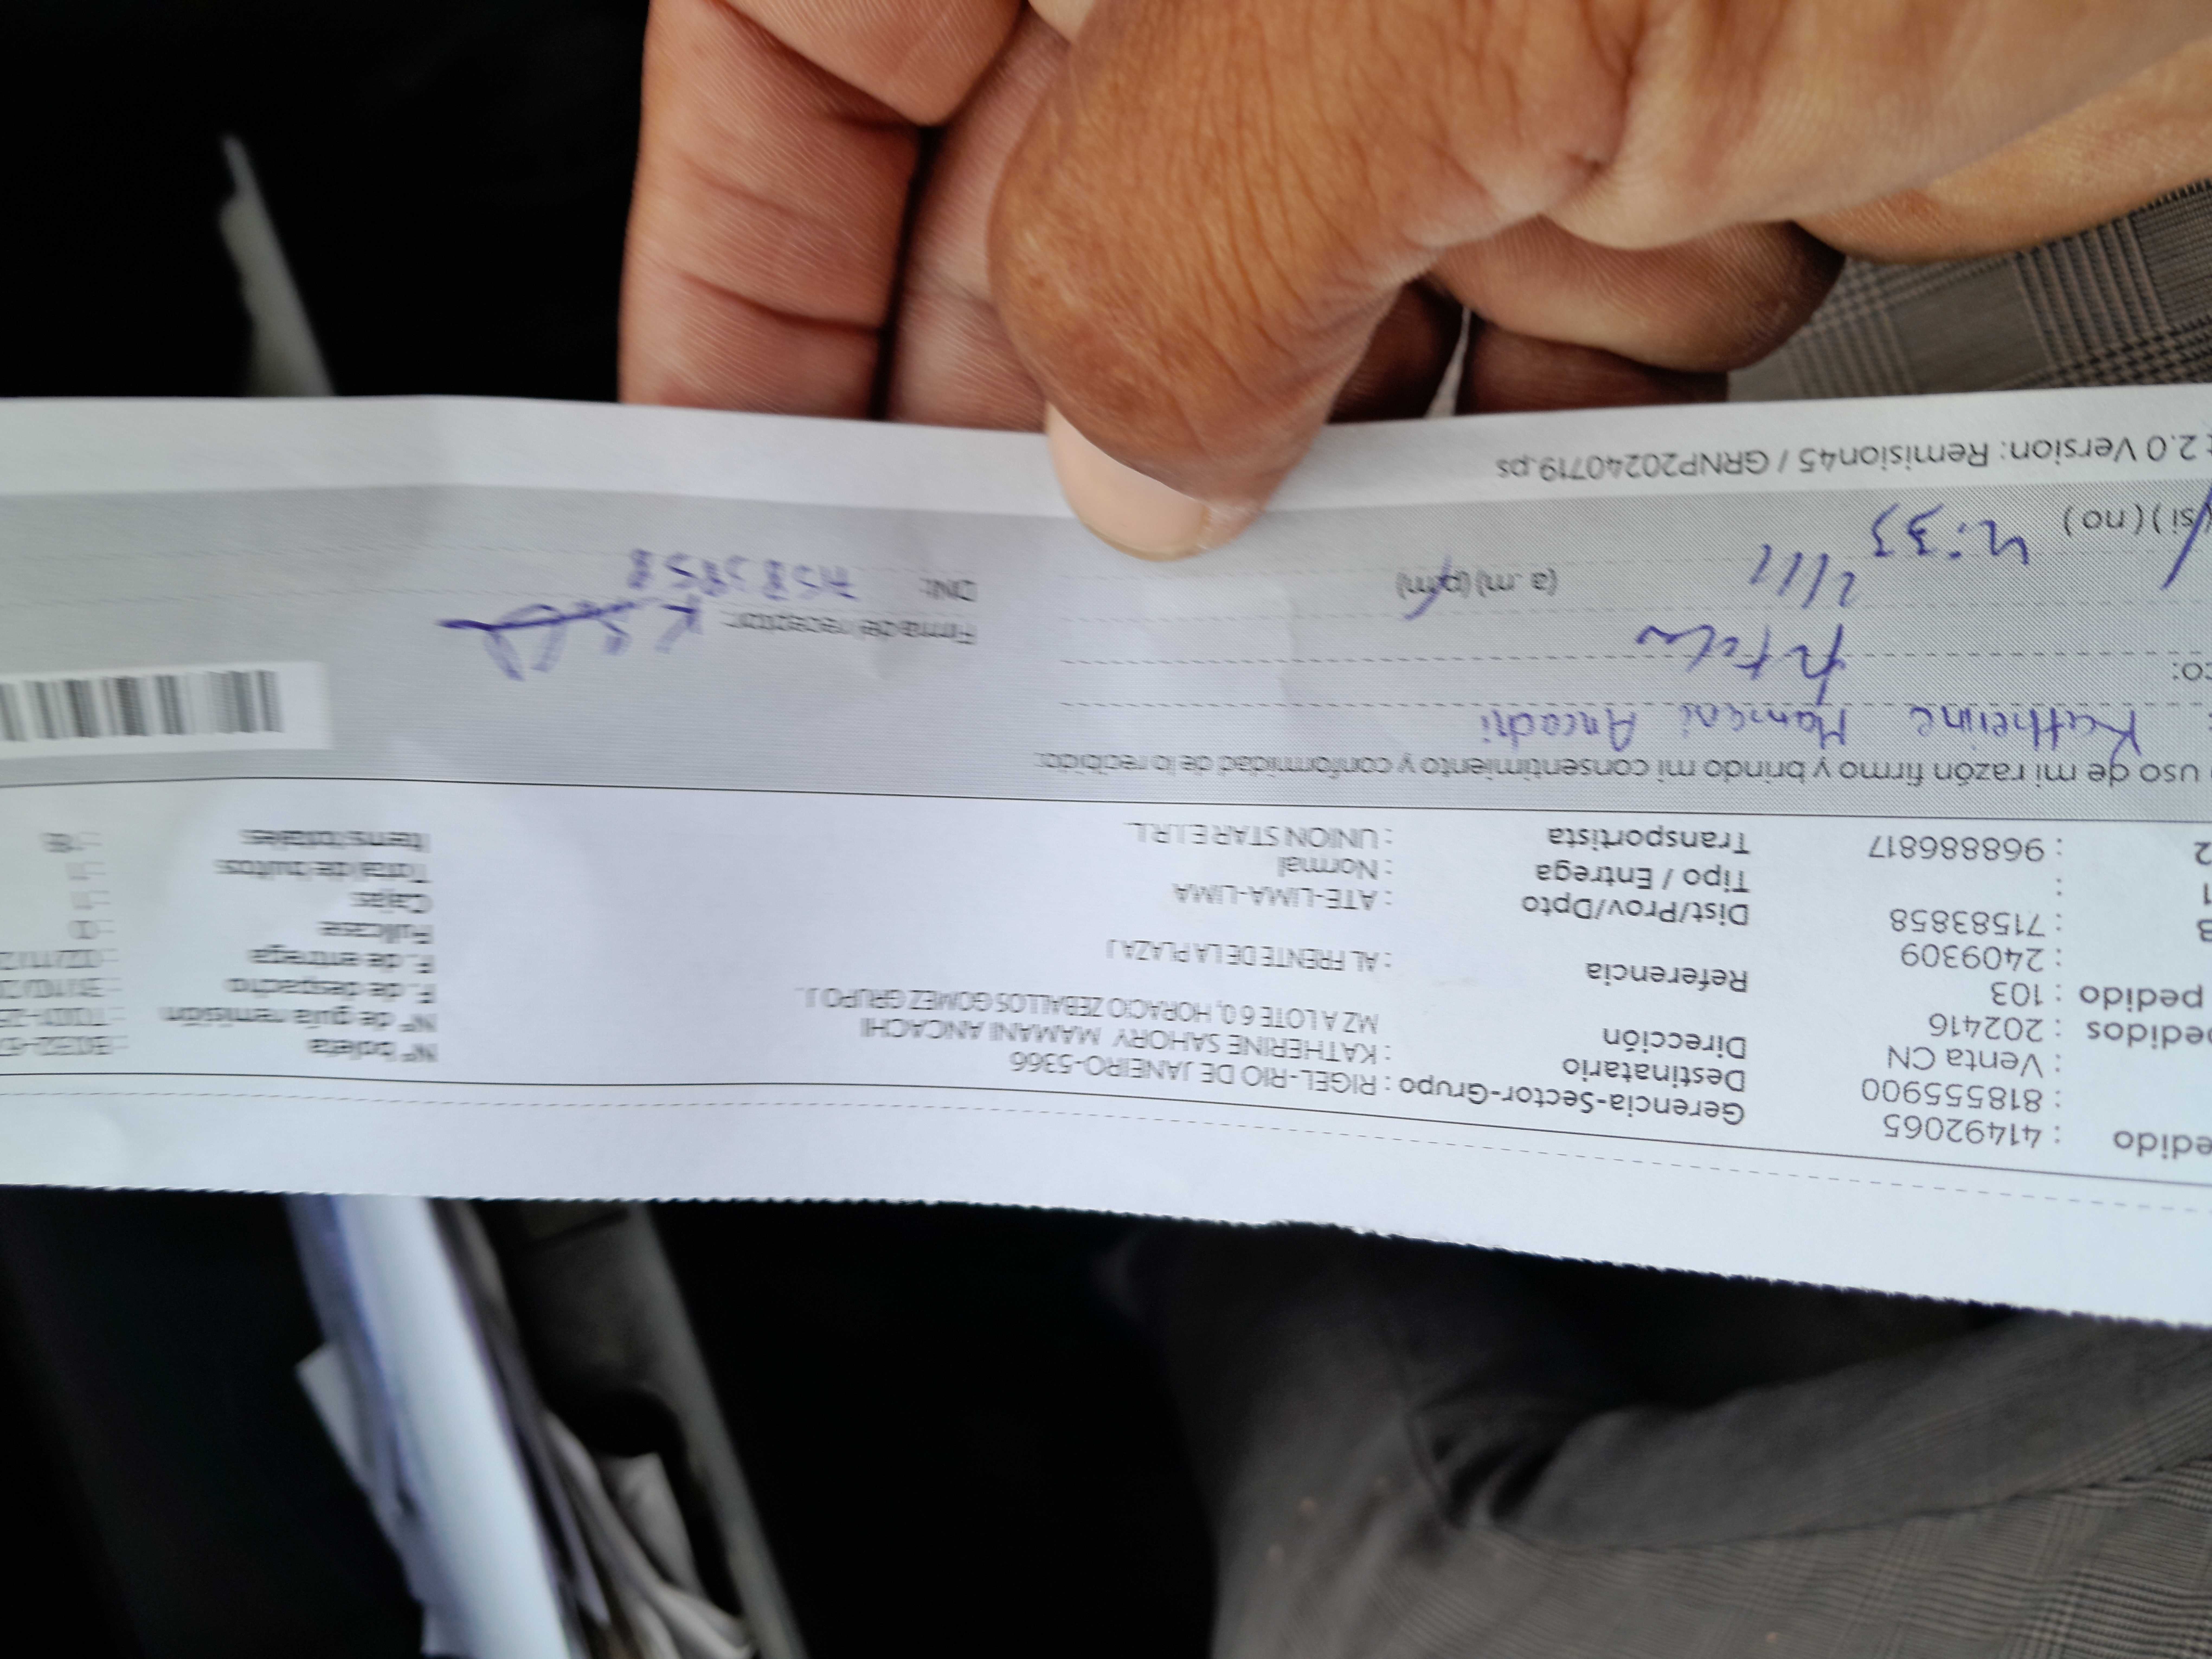 edido : 41492065
: 818555900
: Venta CN
pedidos : 202416
pedido : 103
: 2409309
: 71583858
:
: 968886817
Gerencia-Sector-Grupo : RIGEL-RIO DE JANEIRO-5366
Destinatario : KATHERINE SAHORY MAMANI ANCACHI
Dirección MZ A LOTE 6 0, HORACIO ZEBALLOS GOMEZ GRUPO J
Referencia : AL FRENTE DE LA PLAZA J
Dist/Prov/Dpto : ATE-LIMA-LIMA
Tipo / Entrega : Normal
Transportista : UNION STAR E.I.R.L.
N° boleta
N° de guía remisión
F. de despacho : 31/10/2
F. de entrega : 02/11/2
Fullcase : 0
Cajas : 1
Total de bultos : 1
Items totales
uso de mi razón firmo y brindo mi consentimiento y conformidad de lo recibido:
Katherine Mamani Ancachi
co:
2/11 (a .m) (p.m)
si ) ( no ) 4:33
Firma del receptor:
DNI: 71583858
2.0 Version: Remision45 / GRNP20240719.ps